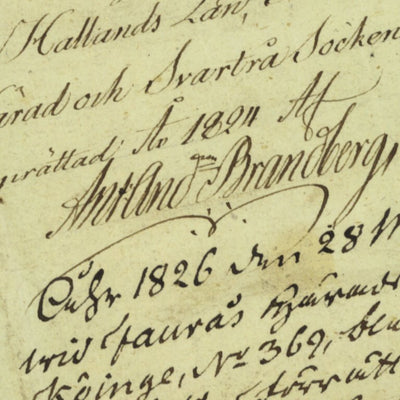 Hallands Län,
ärad och Svartrå Socken
prättad, År 1824 Af
Brandberg
1826 den 28 M
wid Faurås Härads
Köinge, No 369,